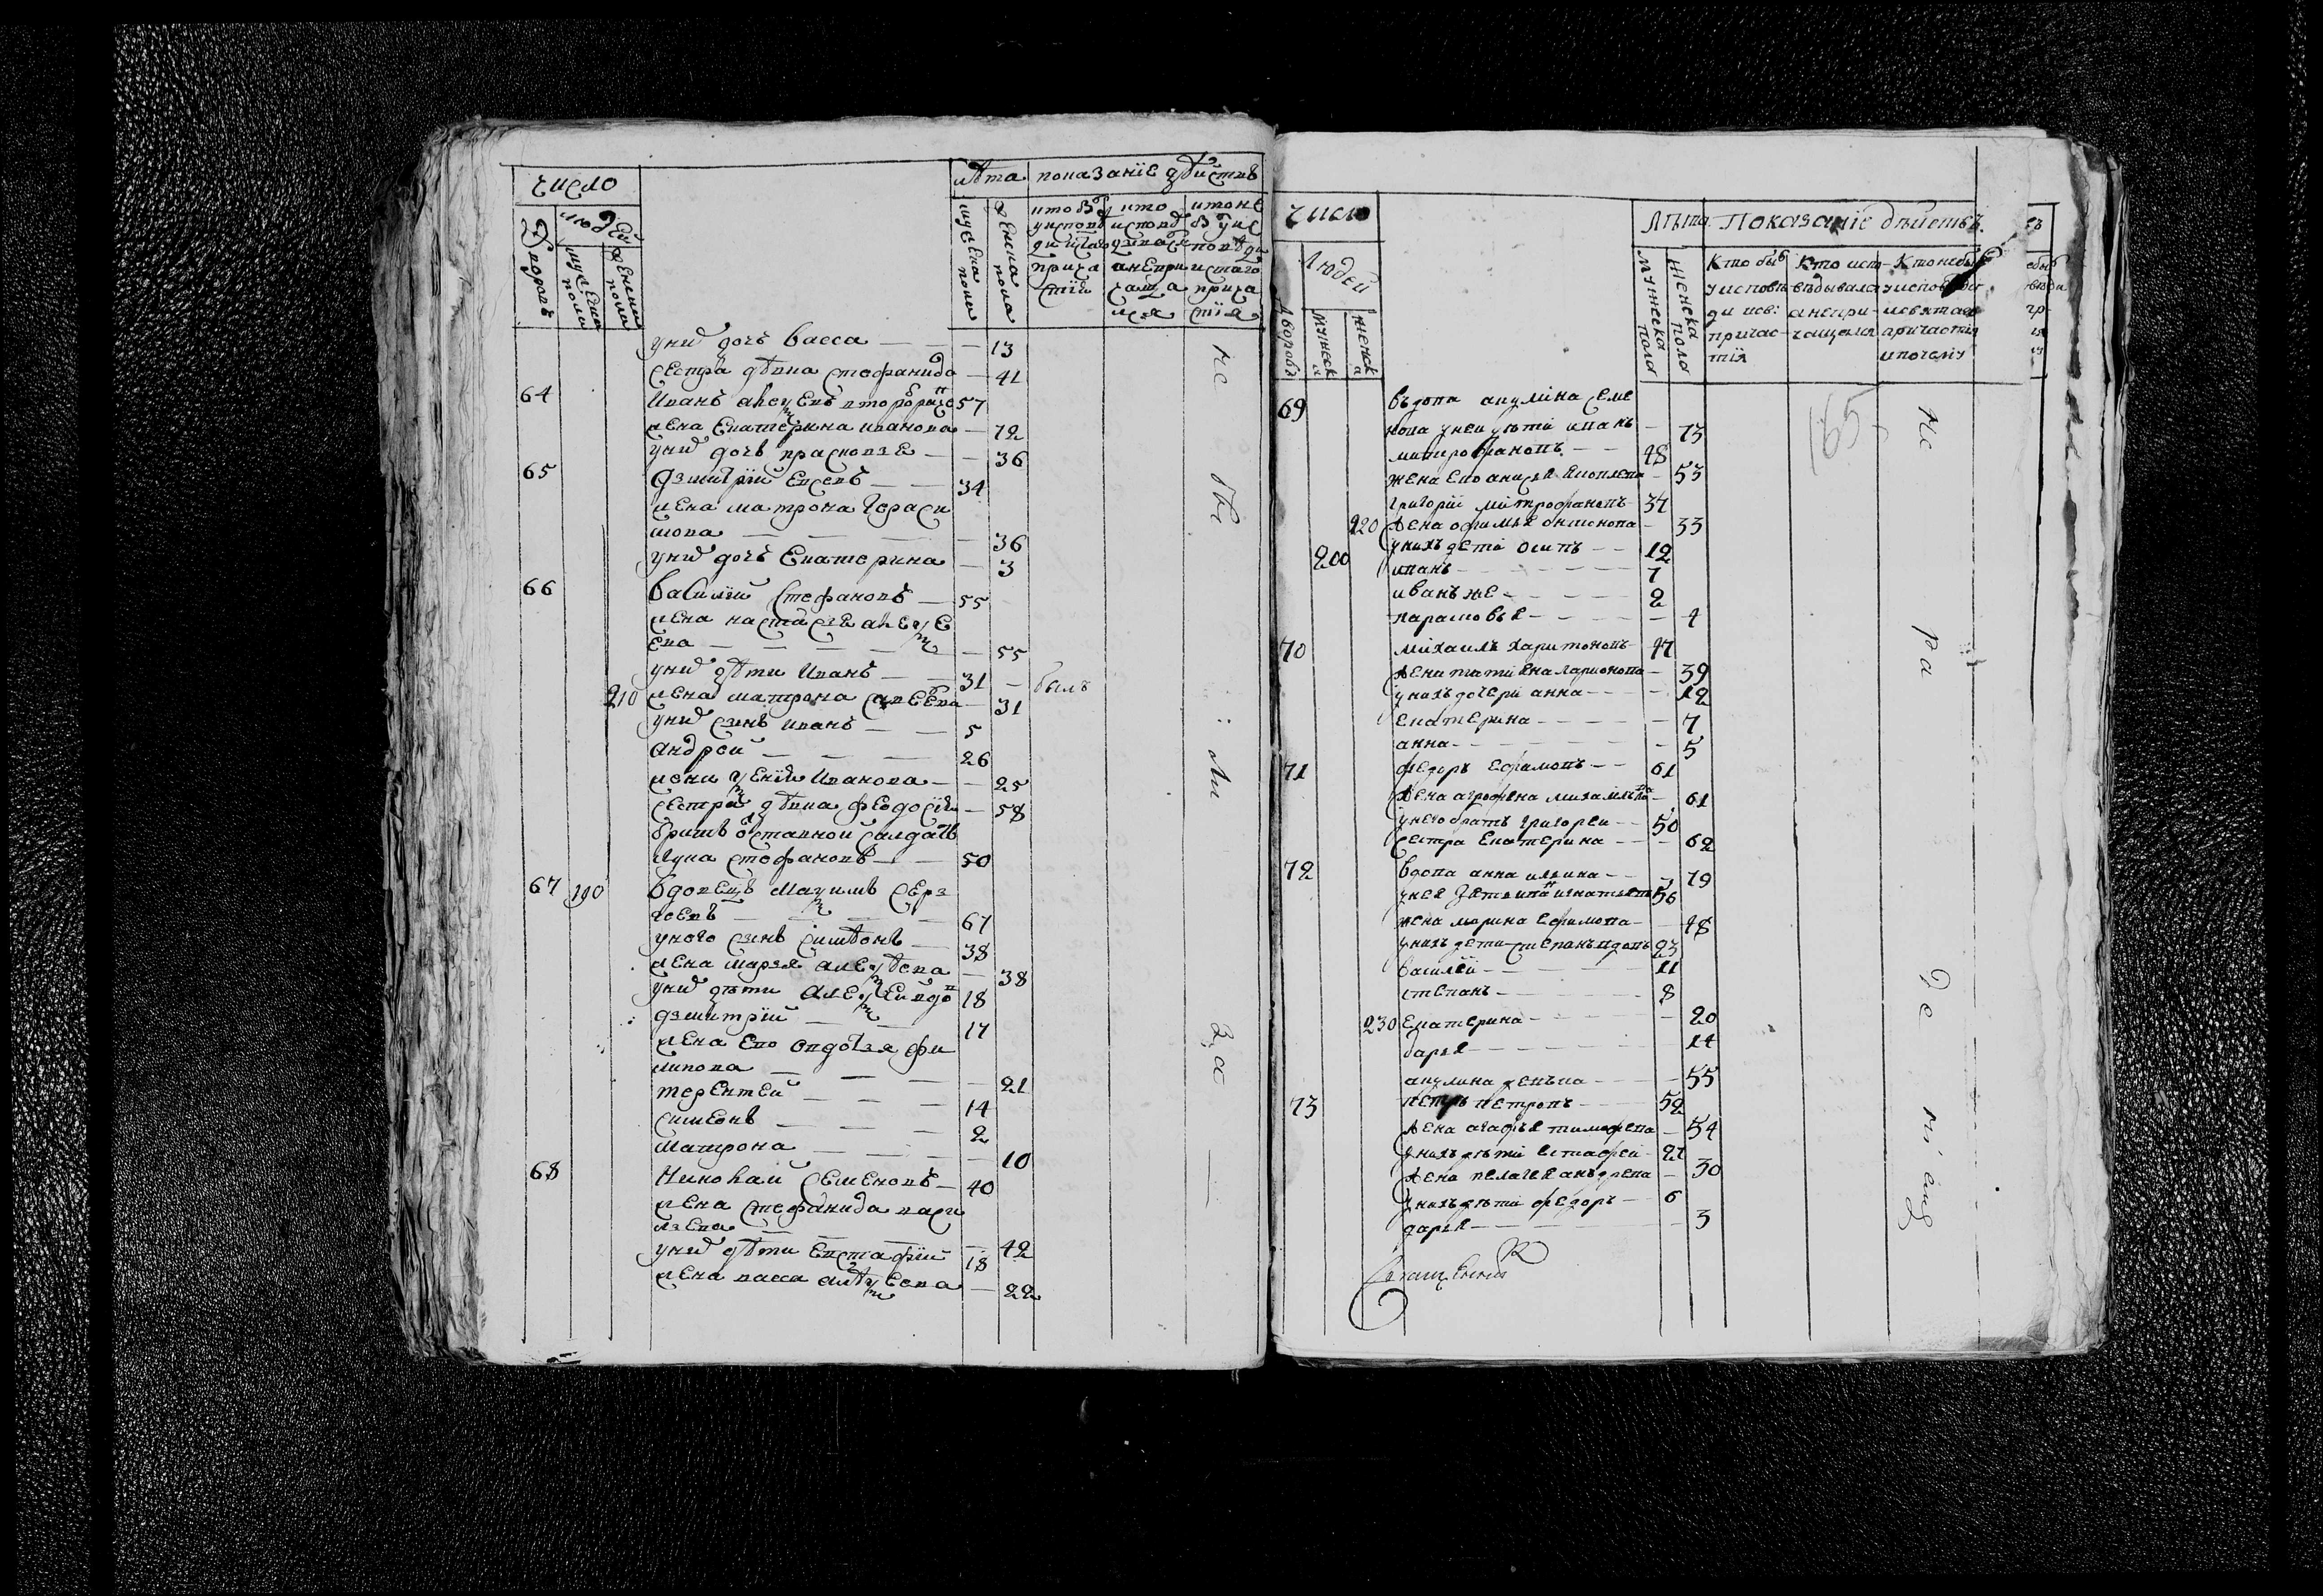 число
лѣта показанїе дѣйствъ
дворовъ
людей
мужеска пола
женска пола
мужеска пола
женска пола
кто бы
у исповѣ
ди и свя
прича
стїя
кто
исповѣ
дывался
а не при
чаща
лся
кто не
бы у ис
повѣди
и стаго
прича
стїя
у них дочь васса — — — 13
сестра дѣвка стефанида — 41
64 Иванъ алексѣевъ второбрач 57
жена Екатерина иванова — 72
у них дочь прасковья — — 36
65 Дмитрїй Евсевъ — — 34
жена матрона Гераси
мова — — — — 36
у них дочь Екатерина — 3
66 Василїй Стефановъ — 55
жена настасья алексѣ
ева — — — — — 55
у них дѣти Иванъ — — 31 — былъ
210 жена матрона савеева — 31
у них сынъ иванъ — — 5
андрей — — — 26
жена ксенїя Иванова — — 25
сестра дѣвка феодосїя — 58
братъ отставной салдатъ
лука стефановъ — — 50
67 190 Вдовецъ Максимъ сер
гѣевъ — — — — 67
у него сынъ симеонъ — 38
жена марья алексѣева — 38
у них дѣти Алексей вдо 18
дмитрїй — — 17
жена Ево Овдотья фи
липова — — — — 21
терентей — — — 14
симеонъ — — — 2
Матрона — — — — 10
68 Николай Семеновъ — 40
жена стефанида васи
льева — — — — 42
у них дѣти Евстафїй 18
жена васса алексѣева — 22
не
бы
ли
за
число
Лѣта Показанїе дѣйствъ
дворовъ
Людей
мужеск
а
женск
а
мужеска пола
женска пола
Кто былъ
у исповѣ
ди и св:
причас-
тїя
Кто испо-
вѣдывался
а не при-
чащался
Кто не бы
у исповѣди
и святаго
причастїя
и почему
165
69 въдова акулина семе
нова у неи дѣти иванъ — 73
митрофановъ — — 48
жена ево анисья яковлева — 53
григорїй митрофановъ — 37
220 жена офимья онтонова — 33
у нихъ дети осипъ — — 12
200 иванъ — — — — 7
иванъ же — — — — 2
парасковья — — — — 4
70 михаилъ харитоновъ — 47
жена татияна ларионова — 39
у нихъ дочери анна — — — 12
екатерина — — — — 7
анна — — — — — 5
71 федоръ ефимовъ — — 61
жена агрофена михаилова — 61
у него братъ григореи — — 50
сестра екатерина — — — 62
72 вдова анна ильина — — 79
у нея зять вдов игнатьевъ 56
жена марина ефимова — 48
у нихъ дети степанъ вдовъ 23
василїй — — — — 11
степанъ — — — — 8
230 Екатерина — — — — 20
дарья — — — — — 14
акулина девъка — — — 55
73 петръ петровъ — — 52
жена агафья тимофева — 54
у нихъ дѣти естафеи — 27
жена пелагея андрева — 30
у нихъ дѣти федоръ — 6
дарья — — — — — 3
Священник
не
ра
де
нї